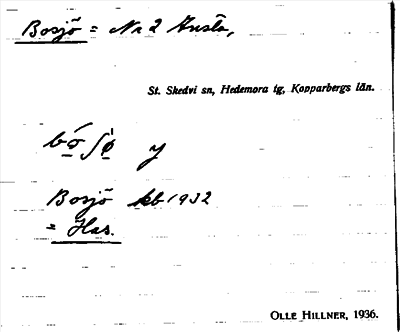 Bosjö = Nr 2 Knista,
St. Skedvi sn, Hedemora tg, Kopparbergs län.
y
Bosjö kb 1932
= Has.
OLLE HILLNER, 1936.